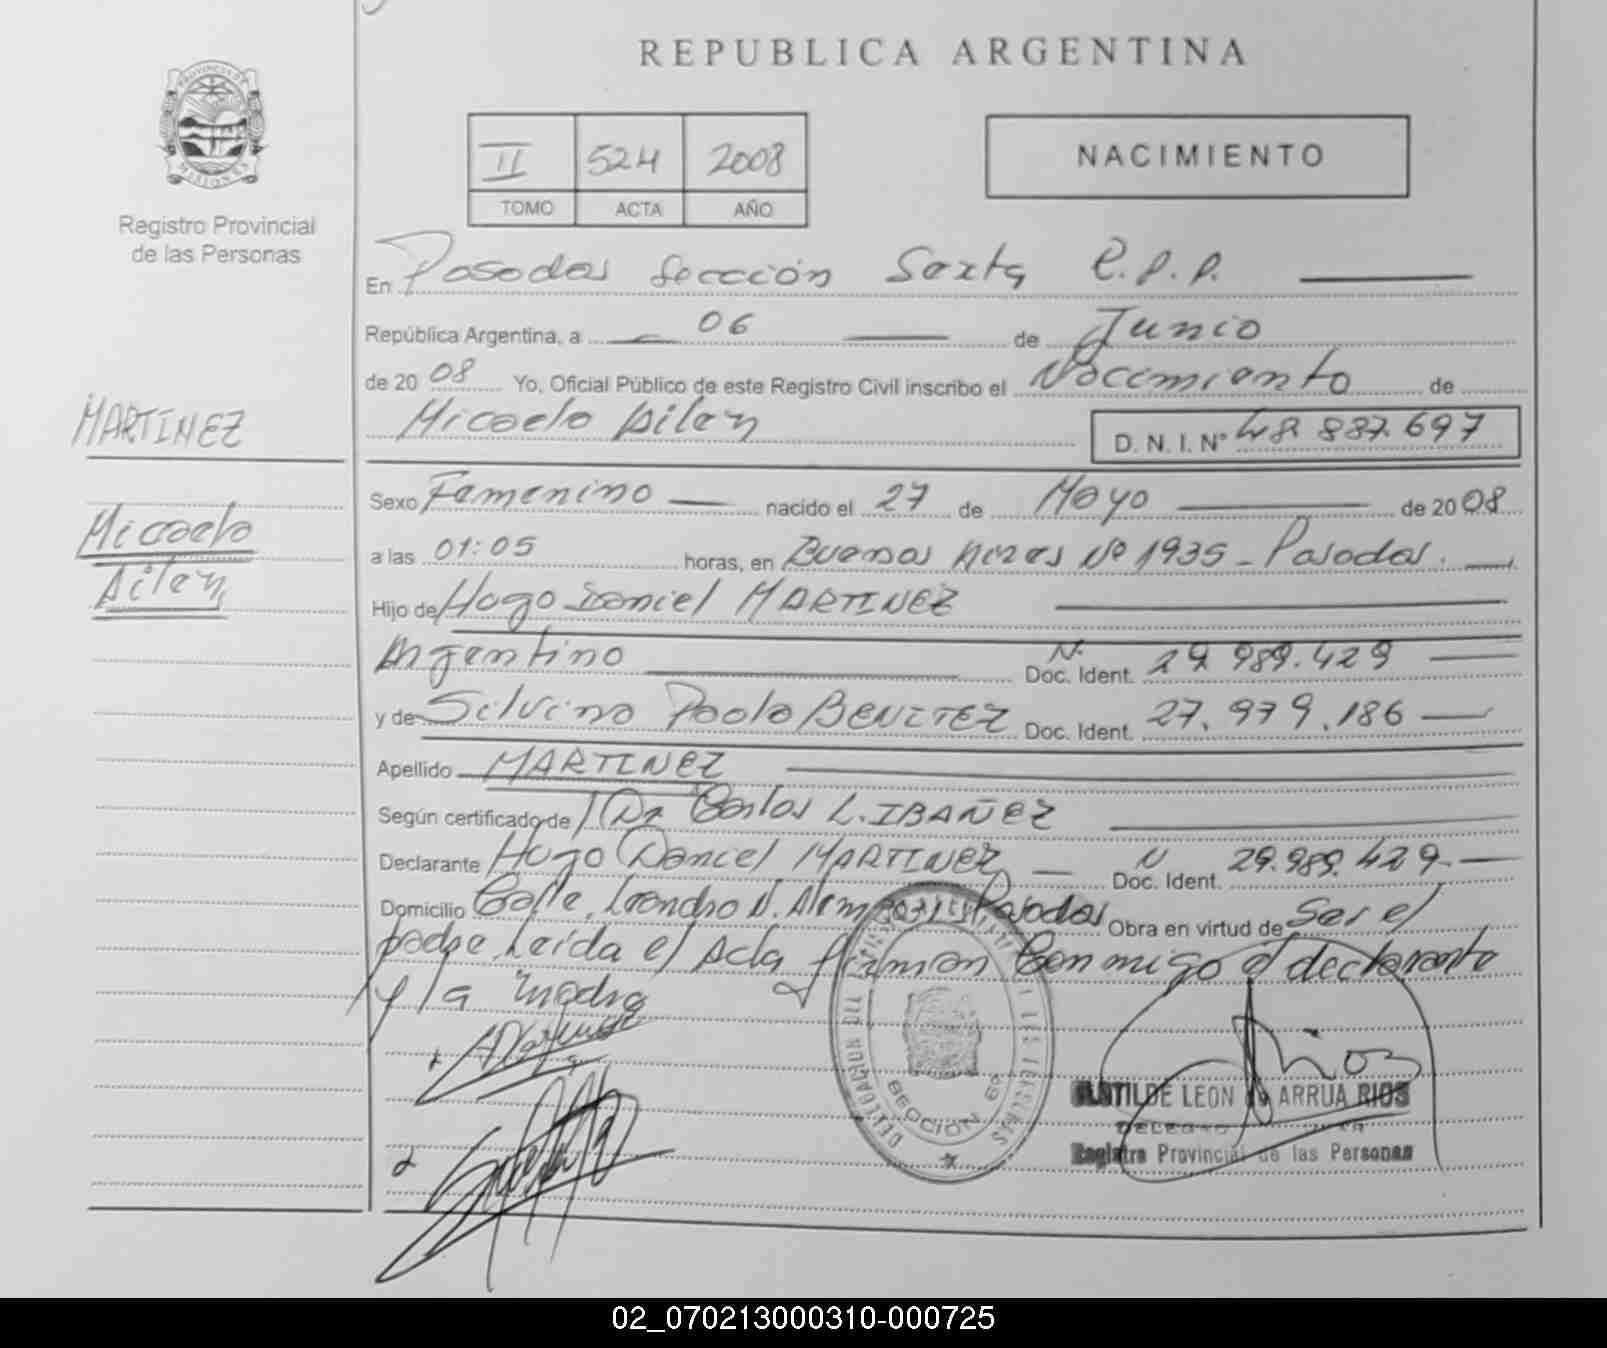 REPUBLICA ARGENTINA
PROVINCIA DE
MISIONES
Registro Provincial
de las Personas
II 524 2008
TOMO ACTA AÑO
NACIMIENTO
En Posadas Sección Sexta R.P.P.
República Argentina, a 06 de Junio
de 2008 Yo, Oficial Público de este Registro Civil inscribo el Nacimiento de
Micaela Ailen D. N. I. Nº 48.887.697
MARTINEZ
Micaela
Ailen
Sexo Femenino nacido el 27 de Mayo de 2008
a las 01:05 horas, en Buenos Aires Nº 1935 - Posadas.
Hijo de Hugo Daniel MARTINEZ
Argentino Doc. Ident. N. 29.989.429
y de Silvina Paola BENITEZ Doc. Ident. 27.979.186
Apellido MARTINEZ
Según certificado de Dr Carlos L. IBAÑEZ
Declarante Hugo Daniel MARTINEZ Doc. Ident. N 29.989.429
Domicilio Calle, Leandro N. Alem Posadas Obra en virtud de Ser el
padre, Leída el Acta firman Conmigo el declarante
y la madre
SECCION 6º
MATILDE LEON de ARRUA RIOS
Registro Provincial de las Personas
02_070213000310-000725